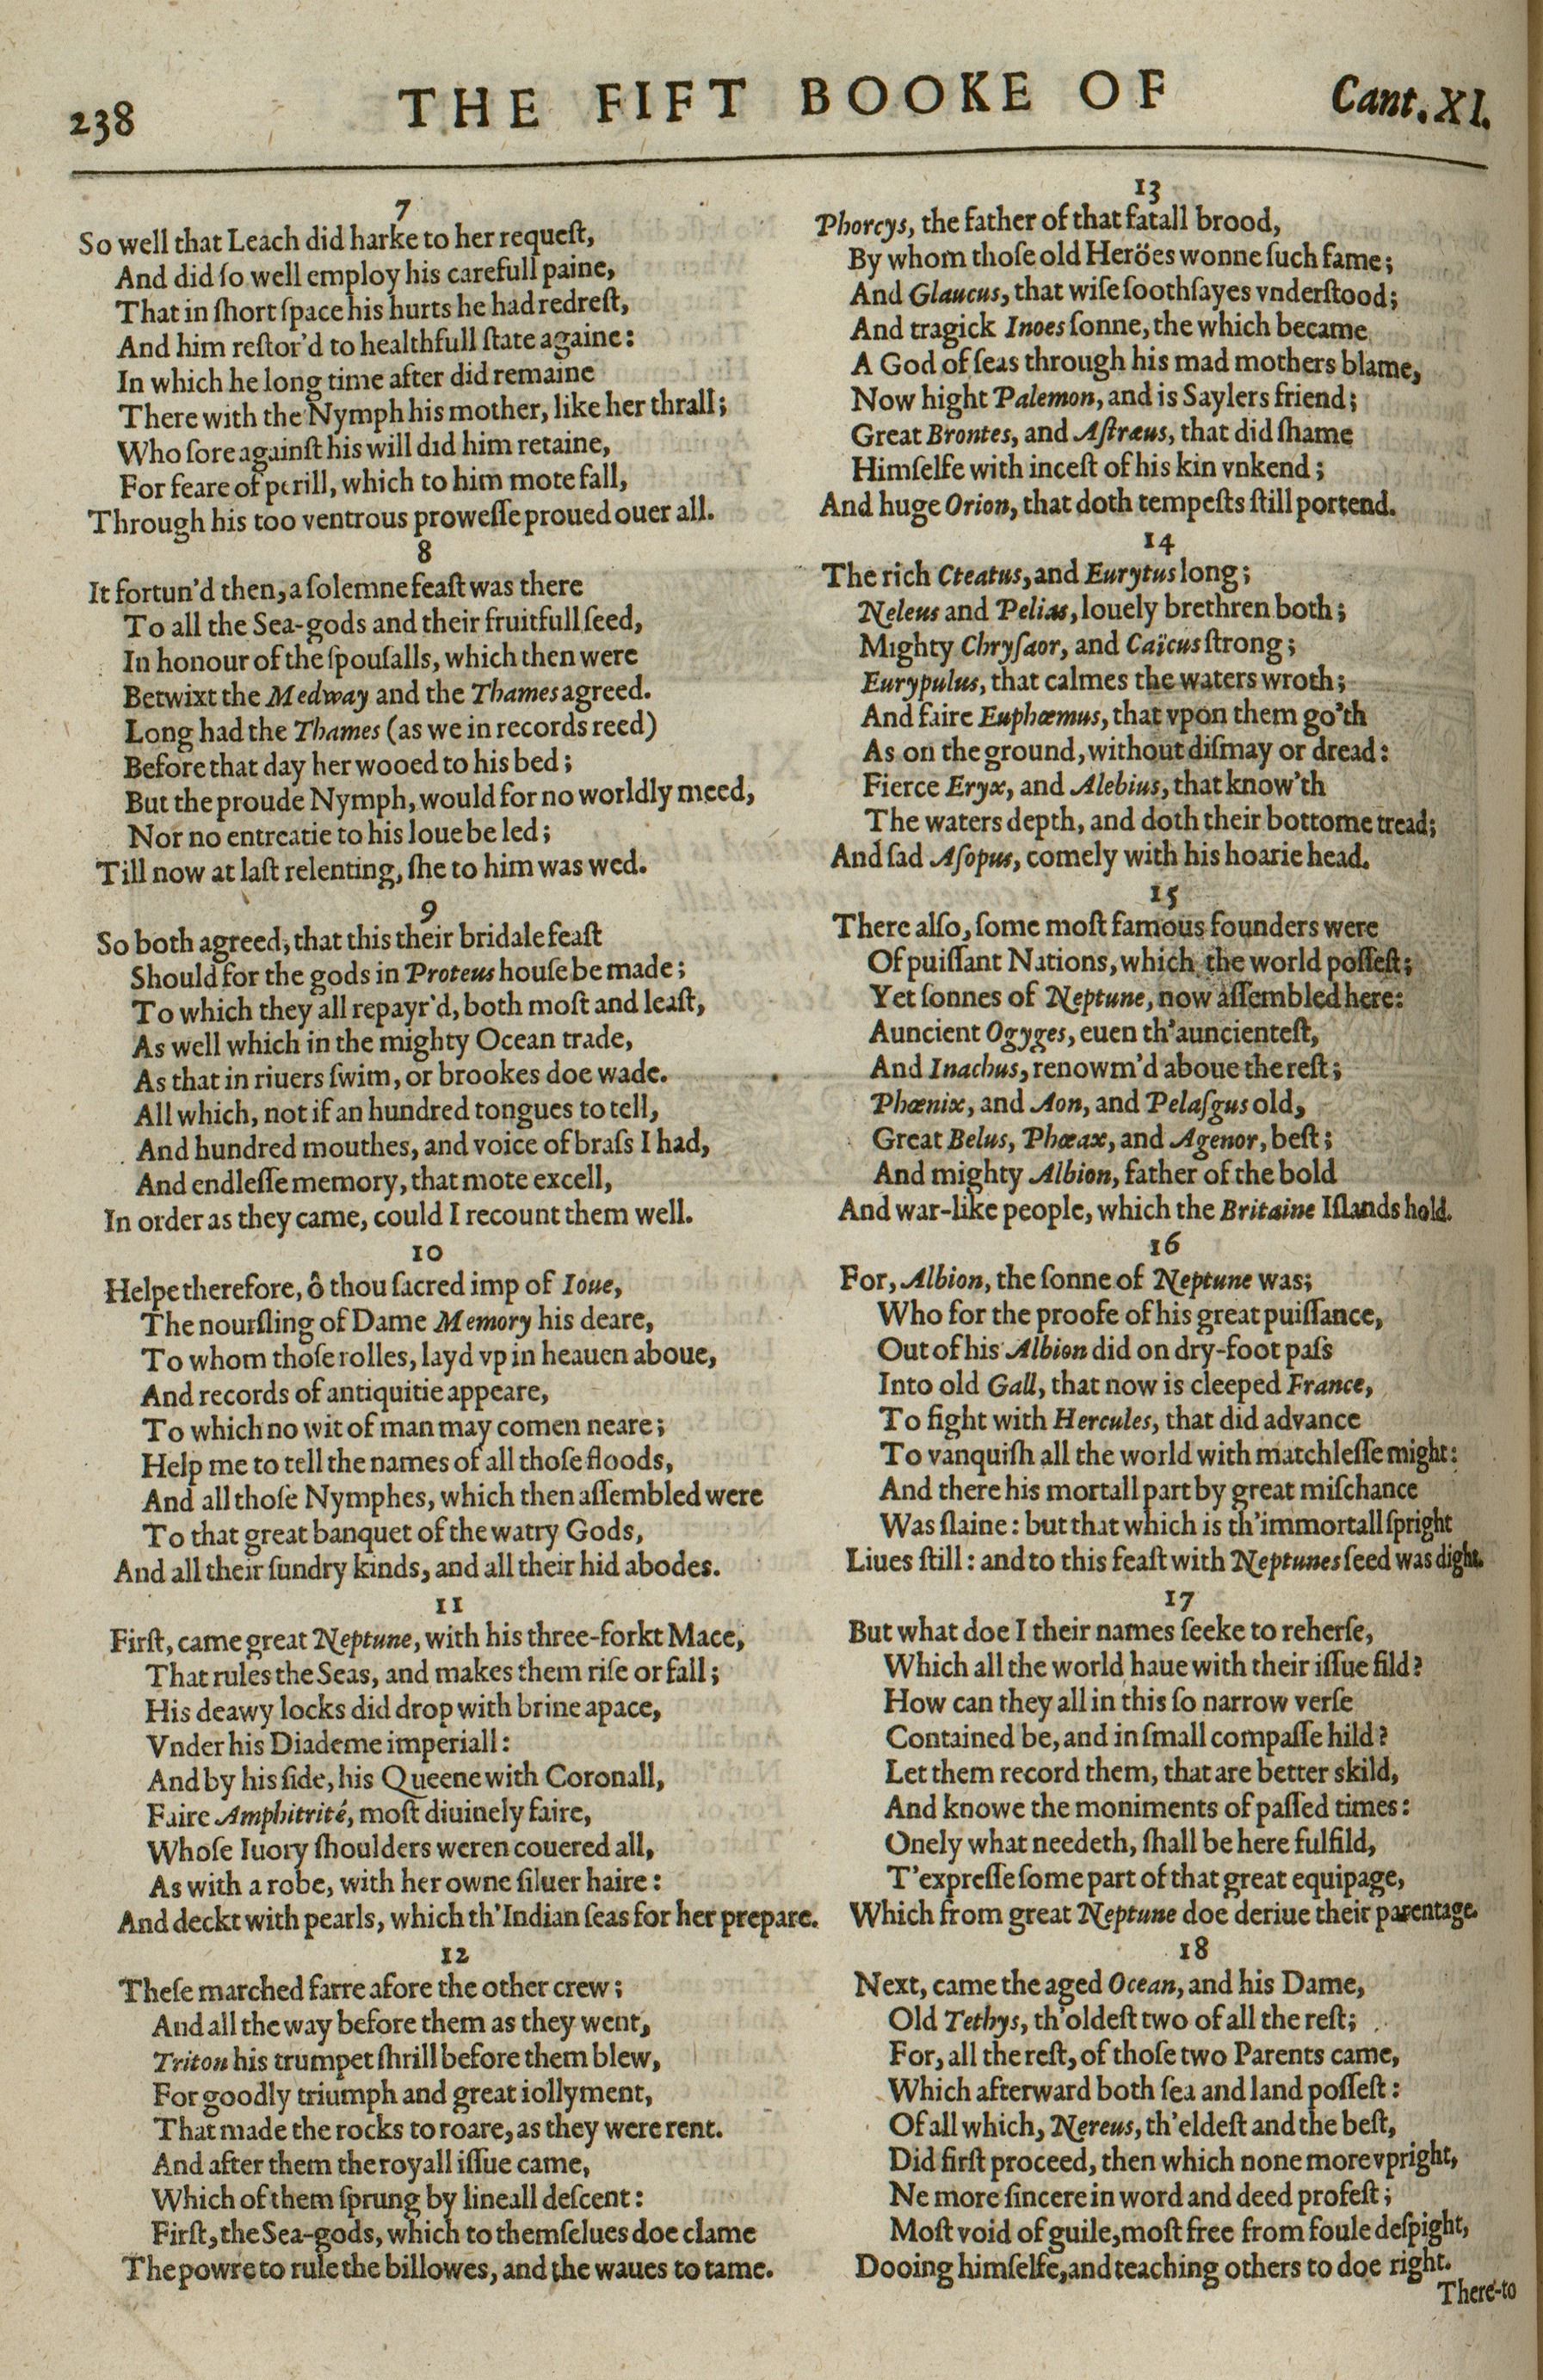 238 THE FIFT BOOKE OF Cant. XI.
7
So well that Leach did harke to her requeſt,
And did ſo well employ his carefull paine,
That in ſhort ſpace his hurts he had redreſt,
And him reſtor'd to healthfull ſtate againe:
In which he long time after did remaine
There with the Nymph his mother, like her thrall;
Who ſore againſt his will did him retaine,
For feare of perill, which to him mote fall,
Through his too ventrous proweſſe proued ouer all.
8
It fortun'd then, a ſolemne feaſt was there
To all the Sea-gods and their fruitfull ſeed,
In honour of the ſpouſalls, which then were
Betwixt the Medway and the Thames agreed.
Long had the Thames (as we in records reed)
Before that day her wooed to his bed;
But the proude Nymph, would for no worldly meed,
Nor no entreatie to his loue be led;
Till now at laſt relenting, ſhe to him was wed.
9
So both agreed, that this their bridale feaſt
Should for the gods in Proteus houſe be made;
To which they all repayr'd, both moſt and leaſt,
As well which in the mighty Ocean trade,
As that in riuers ſwim, or brookes doe wade.
All which, not if an hundred tongues to tell,
And hundred mouthes, and voice of braſs I had,
And endleſſe memory, that mote excell,
In order as they came, could I recount them well.
10
Helpe therefore, ô thou ſacred imp of Ioue,
The nourſling of Dame Memory his deare,
To whom thoſe rolles, layd vp in heauen aboue,
And records of antiquitie appeare,
To which no wit of man may comen neare;
Help me to tell the names of all thoſe floods,
And all thoſe Nymphes, which then aſſembled were
To that great banquet of the watry Gods,
And all their ſundry kinds, and all their hid abodes.
11
Firſt, came great Neptune, with his three-forkt Mace,
That rules the Seas, and makes them riſe or fall;
His deawy locks did drop with brine apace,
Vnder his Diademe imperiall:
And by his ſide, his Queene with Coronall,
Faire Amphitrité, moſt diuinely faire,
Whoſe Iuory ſhoulders weren couered all,
As with a robe, with her owne ſiluer haire:
And deckt with pearls, which th'Indian ſeas for her prepare.
12
Theſe marched farre afore the other crew;
And all the way before them as they went,
Triton his trumpet ſhrill before them blew,
For goodly triumph and great iollyment,
That made the rocks to roare, as they were rent.
And after them the royall iſſue came,
Which of them ſprung by lineall deſcent:
Firſt, the Sea-gods, which to themſelues doe clame
The powre to rule the billowes, and the waues to tame.
13
Phorcys, the father of that fatall brood,
By whom thoſe old Heröes wonne ſuch fame;
And Glaucus, that wiſe ſoothſayes vnderſtood;
And tragick Inoes ſonne, the which became
A God of ſeas through his mad mothers blame,
Now hight Palemon, and is Saylers friend;
Great Brontes, and Aſtræus, that did ſhame
Himſelfe with inceſt of his kin vnkend;
And huge Orion, that doth tempeſts ſtill portend.
14
The rich Cteatus, and Eurytus long;
Neleus and Pelias, louely brethren both;
Mighty Chryſaor, and Caïcus ſtrong;
Eurypulus, that calmes the waters wroth;
And faire Euphœmus, that vpon them go'th
As on the ground, without diſmay or dread:
Fierce Eryx, and Alebius, that know'th
The waters depth, and doth their bottome tread;
And ſad Aſopus, comely with his hoarie head.
15
There alſo, ſome moſt famous founders were
Of puiſſant Nations, which the world poſſeſt;
Yet ſonnes of Neptune, now aſſembled here:
Auncient Ogyges, euen th'auncienteſt,
And Inachus, renowm'd aboue the reſt;
Phœnix, and Aon, and Pelaſgus old,
Great Belus, Phœax, and Agenor, beſt;
And mighty Albion, father of the bold
And war-like people, which the Britaine Iſlands hold.
16
For, Albion, the ſonne of Neptune was;
Who for the proofe of his great puiſſance,
Out of his Albion did on dry-foot paſs
Into old Gall, that now is cleeped France,
To fight with Hercules, that did advance
To vanquiſh all the world with matchleſſe might:
And there his mortall part by great miſchance
Was ſlaine: but that which is th'immortall ſpright
Liues ſtill: and to this feaſt with Neptunes ſeed was dight.
17
But what doe I their names ſeeke to reherſe,
Which all the world haue with their iſſue fild?
How can they all in this ſo narrow verſe
Contained be, and in ſmall compaſſe hild?
Let them record them, that are better skild,
And knowe the moniments of paſſed times:
Onely what needeth, ſhall be here fulfild,
T'expreſſe ſome part of that great equipage,
Which from great Neptune doe deriue their parentage.
18
Next, came the aged Ocean, and his Dame,
Old Tethys, th'oldeſt two of all the reſt;
For, all the reſt, of thoſe two Parents came,
Which afterward both ſea and land poſſeſt:
Of all which, Nereus, th'eldeſt and the beſt,
Did firſt proceed, then which none more vpright,
Ne more ſincere in word and deed profeſt;
Moſt void of guile, moſt free from foule deſpight,
Dooing himſelfe, and teaching others to doe right.
There-to